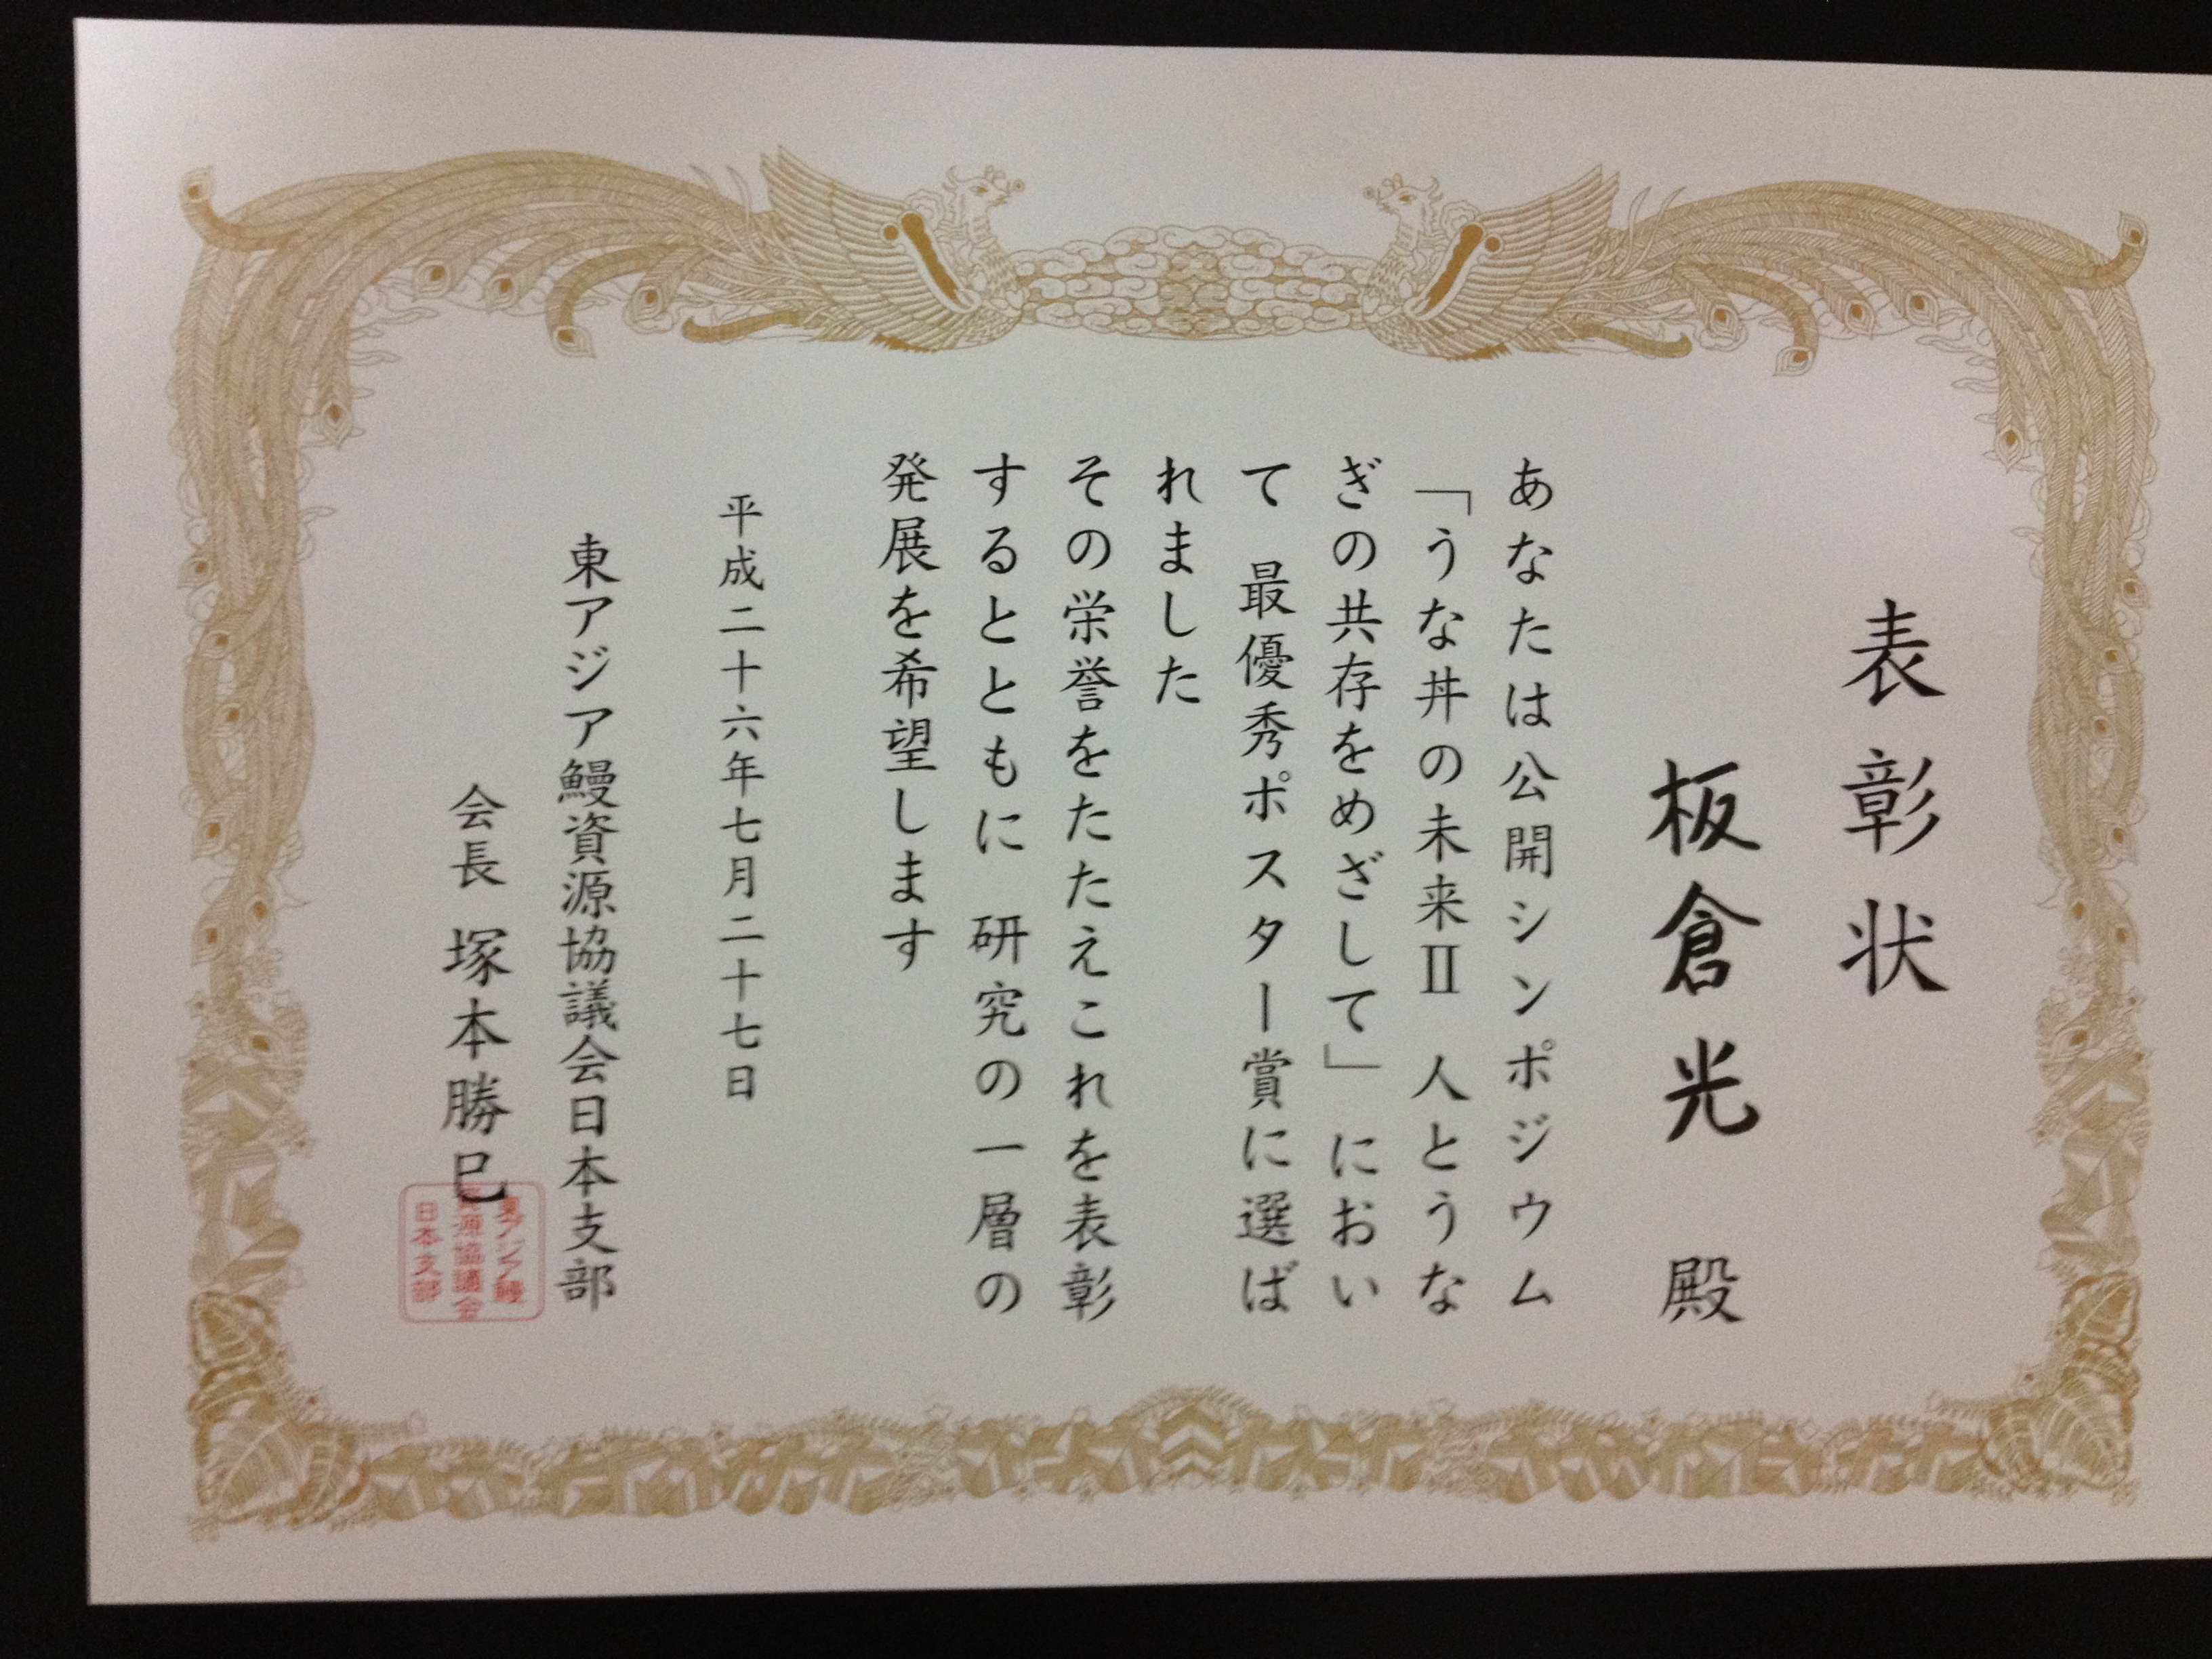 表彰状
板倉光 殿
あなたは公開シンポジウム
「うな丼の未来Ⅱ 人とうな
ぎの共存をめざして」におい
て 最優秀ポスター賞に選ば
れました
その栄誉をたたえこれを表彰
するとともに 研究の一層の
発展を希望します
平成二十六年七月二十七日
東アジア鰻資源協議会日本支部
会長 塚本勝巳
東アジア鰻
資源協議会
日本支部